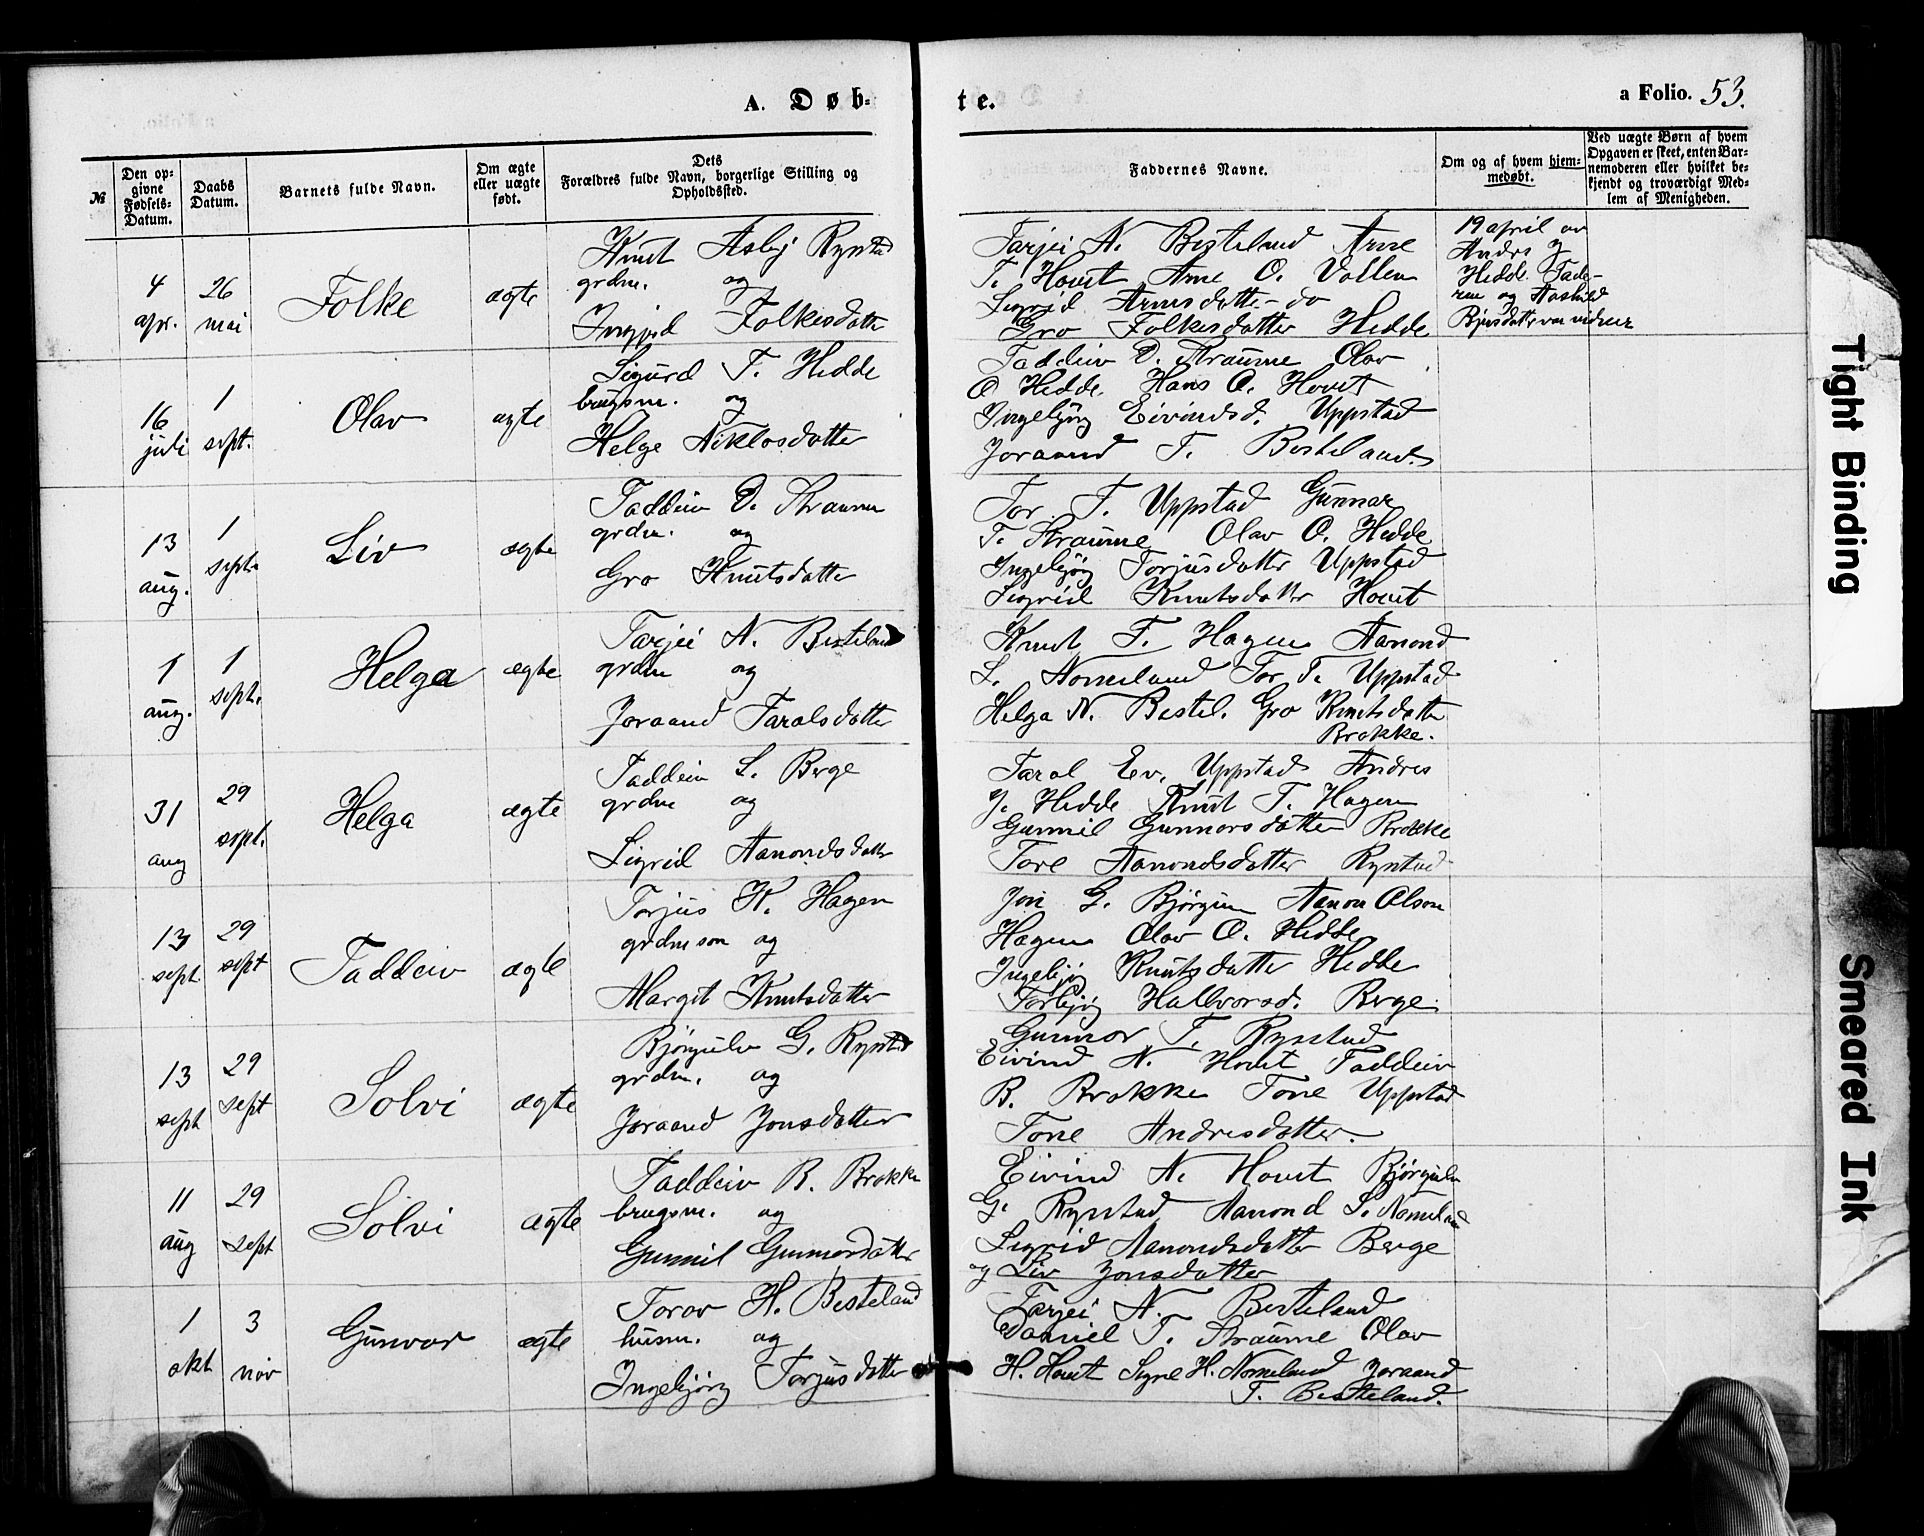 A. Døb-
te.
a Folio. 53.
№
Den op-
givne
Fødsels-
Datum.
Daabs
Datum.
Barnets fulde Navn.
Om ægte
eller uægte
født.
Dets
Forældres fulde Navn, borgerlige Stilling og
Opholdssted.
Faddernes Navne.
Om og af hvem hjem-
medøbt.
Ved uægte Børn af hvem
Opgaven er skeet, enten Bar-
nemoderen eller hvilket be-
kjendt og troværdigt Med-
lem af Menigheden.
4
apr.
26
mai
Folke
ægte
Knut Asbj Rystad
grdm. og
Ingjerd Folkesdatter
Tarjei N. Besteland Arne
T. Hovet Arne O. Vollen
Sigrid Arnesdatter do
Gro Folkesdatter Hedde
19 april av
Andrs J
Hedde. Fade-
ren og Aashild
16
juli
1
sept.
Olav
ægte
Sigurd T. Hedde
brugsm. og
Helge Niklosdatter
Taddeiv D. Straume Olav
O Hedde. Hans O. Hovet
Ingebjørg Eivindsd. Uppstad
Joraand T. Besteland.
13
aug.
1
sept.
Liv
ægte
Taddeiv D. Straume
grdm. og
Gro Knutsdatter
Tor T. Uppstad Gunnar
T. Straume Olav O. Hedde
Ingebjørg Torjusdatter Uppstad
Sigrid Knutsdatter Hovet
1
aug.
1
sept.
Helga
ægte
Tarjei N. Besteland
grdm og
Joraand Taralsdatter
Knut T. Hagen Aanond
S. Nomeland Tor T. Uppstad
Helga N. Bestel. Gro Knutsdatter
Brokke.
31
aug
29
sept.
Helga
ægte
Taddeiv S. Berge
grdm og
Sigrid Aanondsdatter
Taral Ev. Uppstad Andres
J. Hedde Knut T. Hagen
Gunnil Gunnarsdatter Brokke
Tore Aanondsdatter Rystad
13
sept
29
sept
Taddeiv
ægte
Torjus K. Hagen
grdmson og
Margit Knutsdatter
Jon G. Bjørgum Aanon Olson
Hagen Olav O. Hedde
Ingebjø Knutsdatter Hedde
Torbjø Hallvorsd. Berge
13
sept
29
sept
Solvi
ægte
Bjørgulv G. Rysta
grdm. og
Joraand Jonsdatter
Gunnar T. Rysstad
Eivind N. Hovet Taddeiv
B. Brokke Tone Uppstad
Tone Andresdatter.
11
aug
29
sept
Solvi
ægte
Taddeiv B. Brokke
brugsm. og
Gunnil Gunnarsdatter
Eivind N. Hovet Bjørgulv
G. Rystad Aanond S. Nomeland
Sigrid Aanondsdatter Berge
og Liv Jonsdatter
1
okt
3
nov
Gunvor
ægte
Torov H. Besteland
husm. og
Ingebjørg Torjusdatter
Tarjei N. Besteland
Daniel T. Straume Olav
H. Hovet Signe H. Nomeland Joraand
T. Besteland.
Tight Binding
Smeared Ink